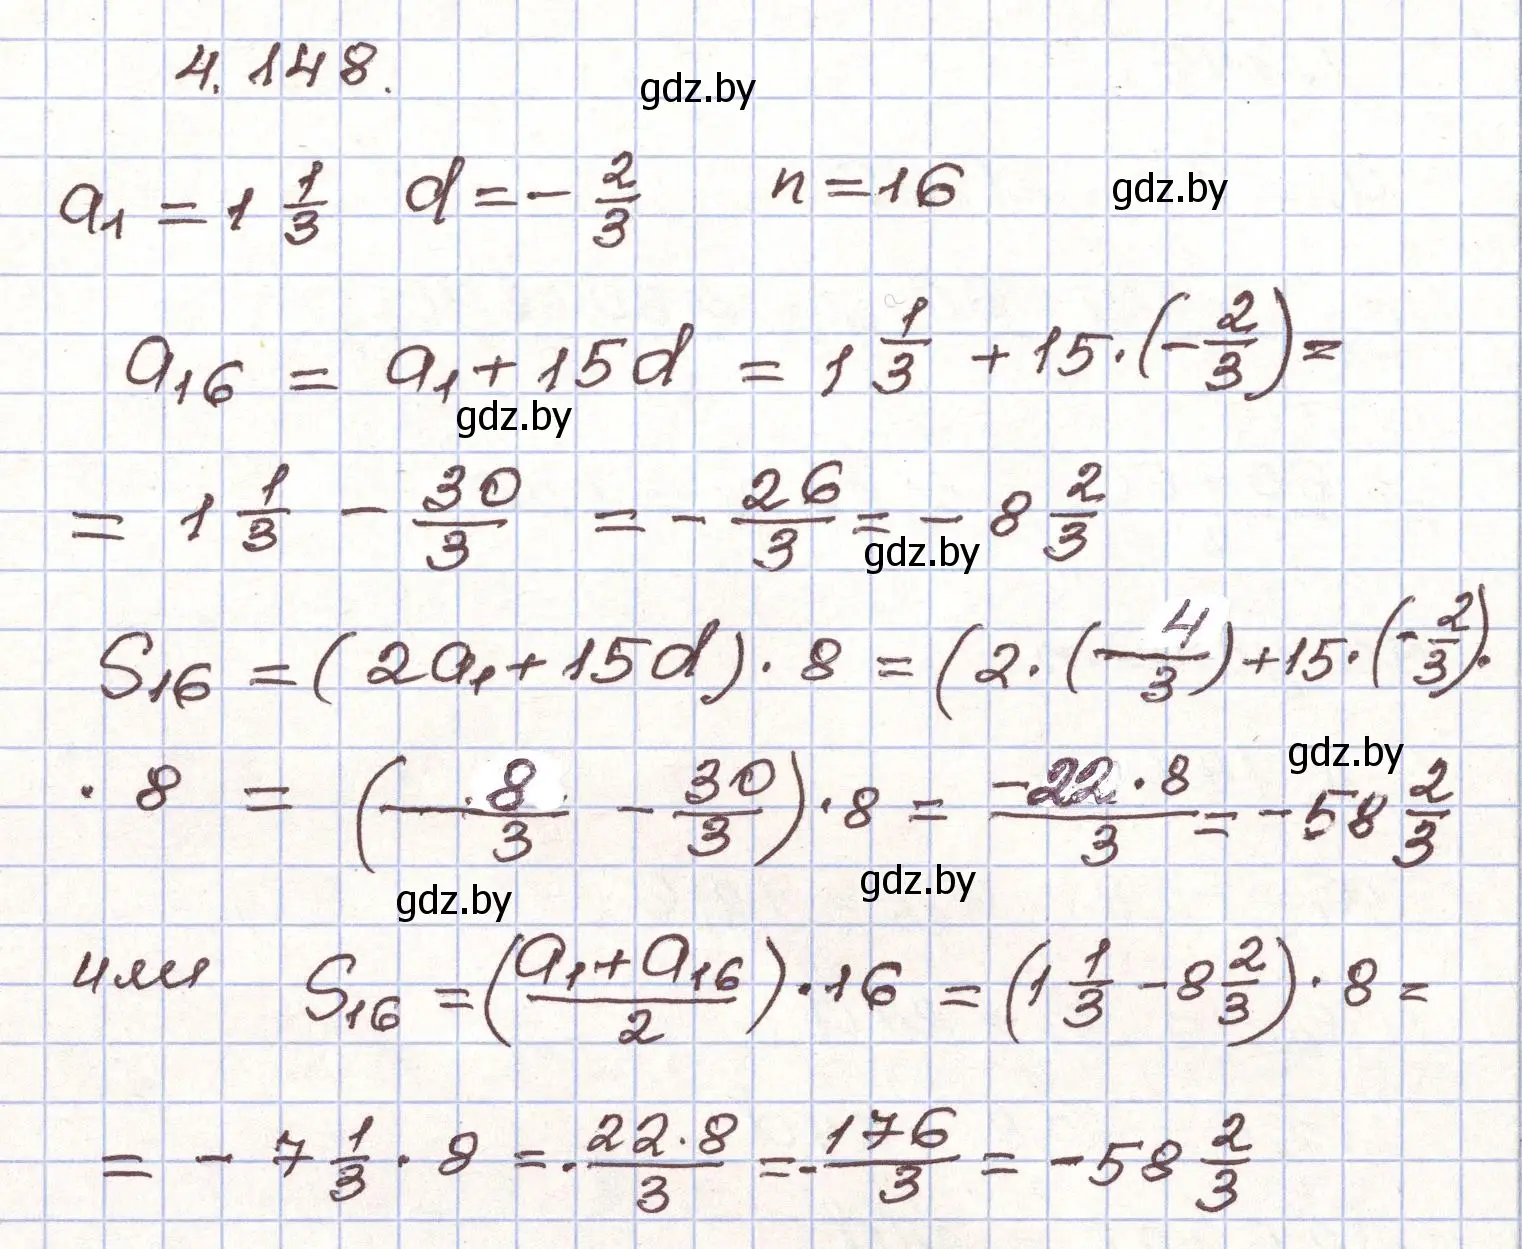 4.148.
gdz.by
a₁ = 1 1/3   d = - 2/3   n = 16
gdz.by
a₁₆ = a₁ + 15d = 1 1/3 + 15 · (- 2/3) =
gdz.by
= 1 1/3 - 30/3 = - 26/3 = - 8 2/3
gdz.by
S₁₆ = (2a₁ + 15d) · 8 = (2 · (— 4/3) + 15 · (- 2/3) ·
gdz.by
· 8 = (— 8/3 - 30/3) · 8 = -22 · 8/3 = - 58 2/3
gdz.by
gdz.by
или S₁₆ = (a₁ + a₁₆/2) · 16 = (1 1/3 - 8 2/3) · 8 =
= - 7 1/3 · 8 = - 22 · 8/3 = - 176/3 = - 58 2/3